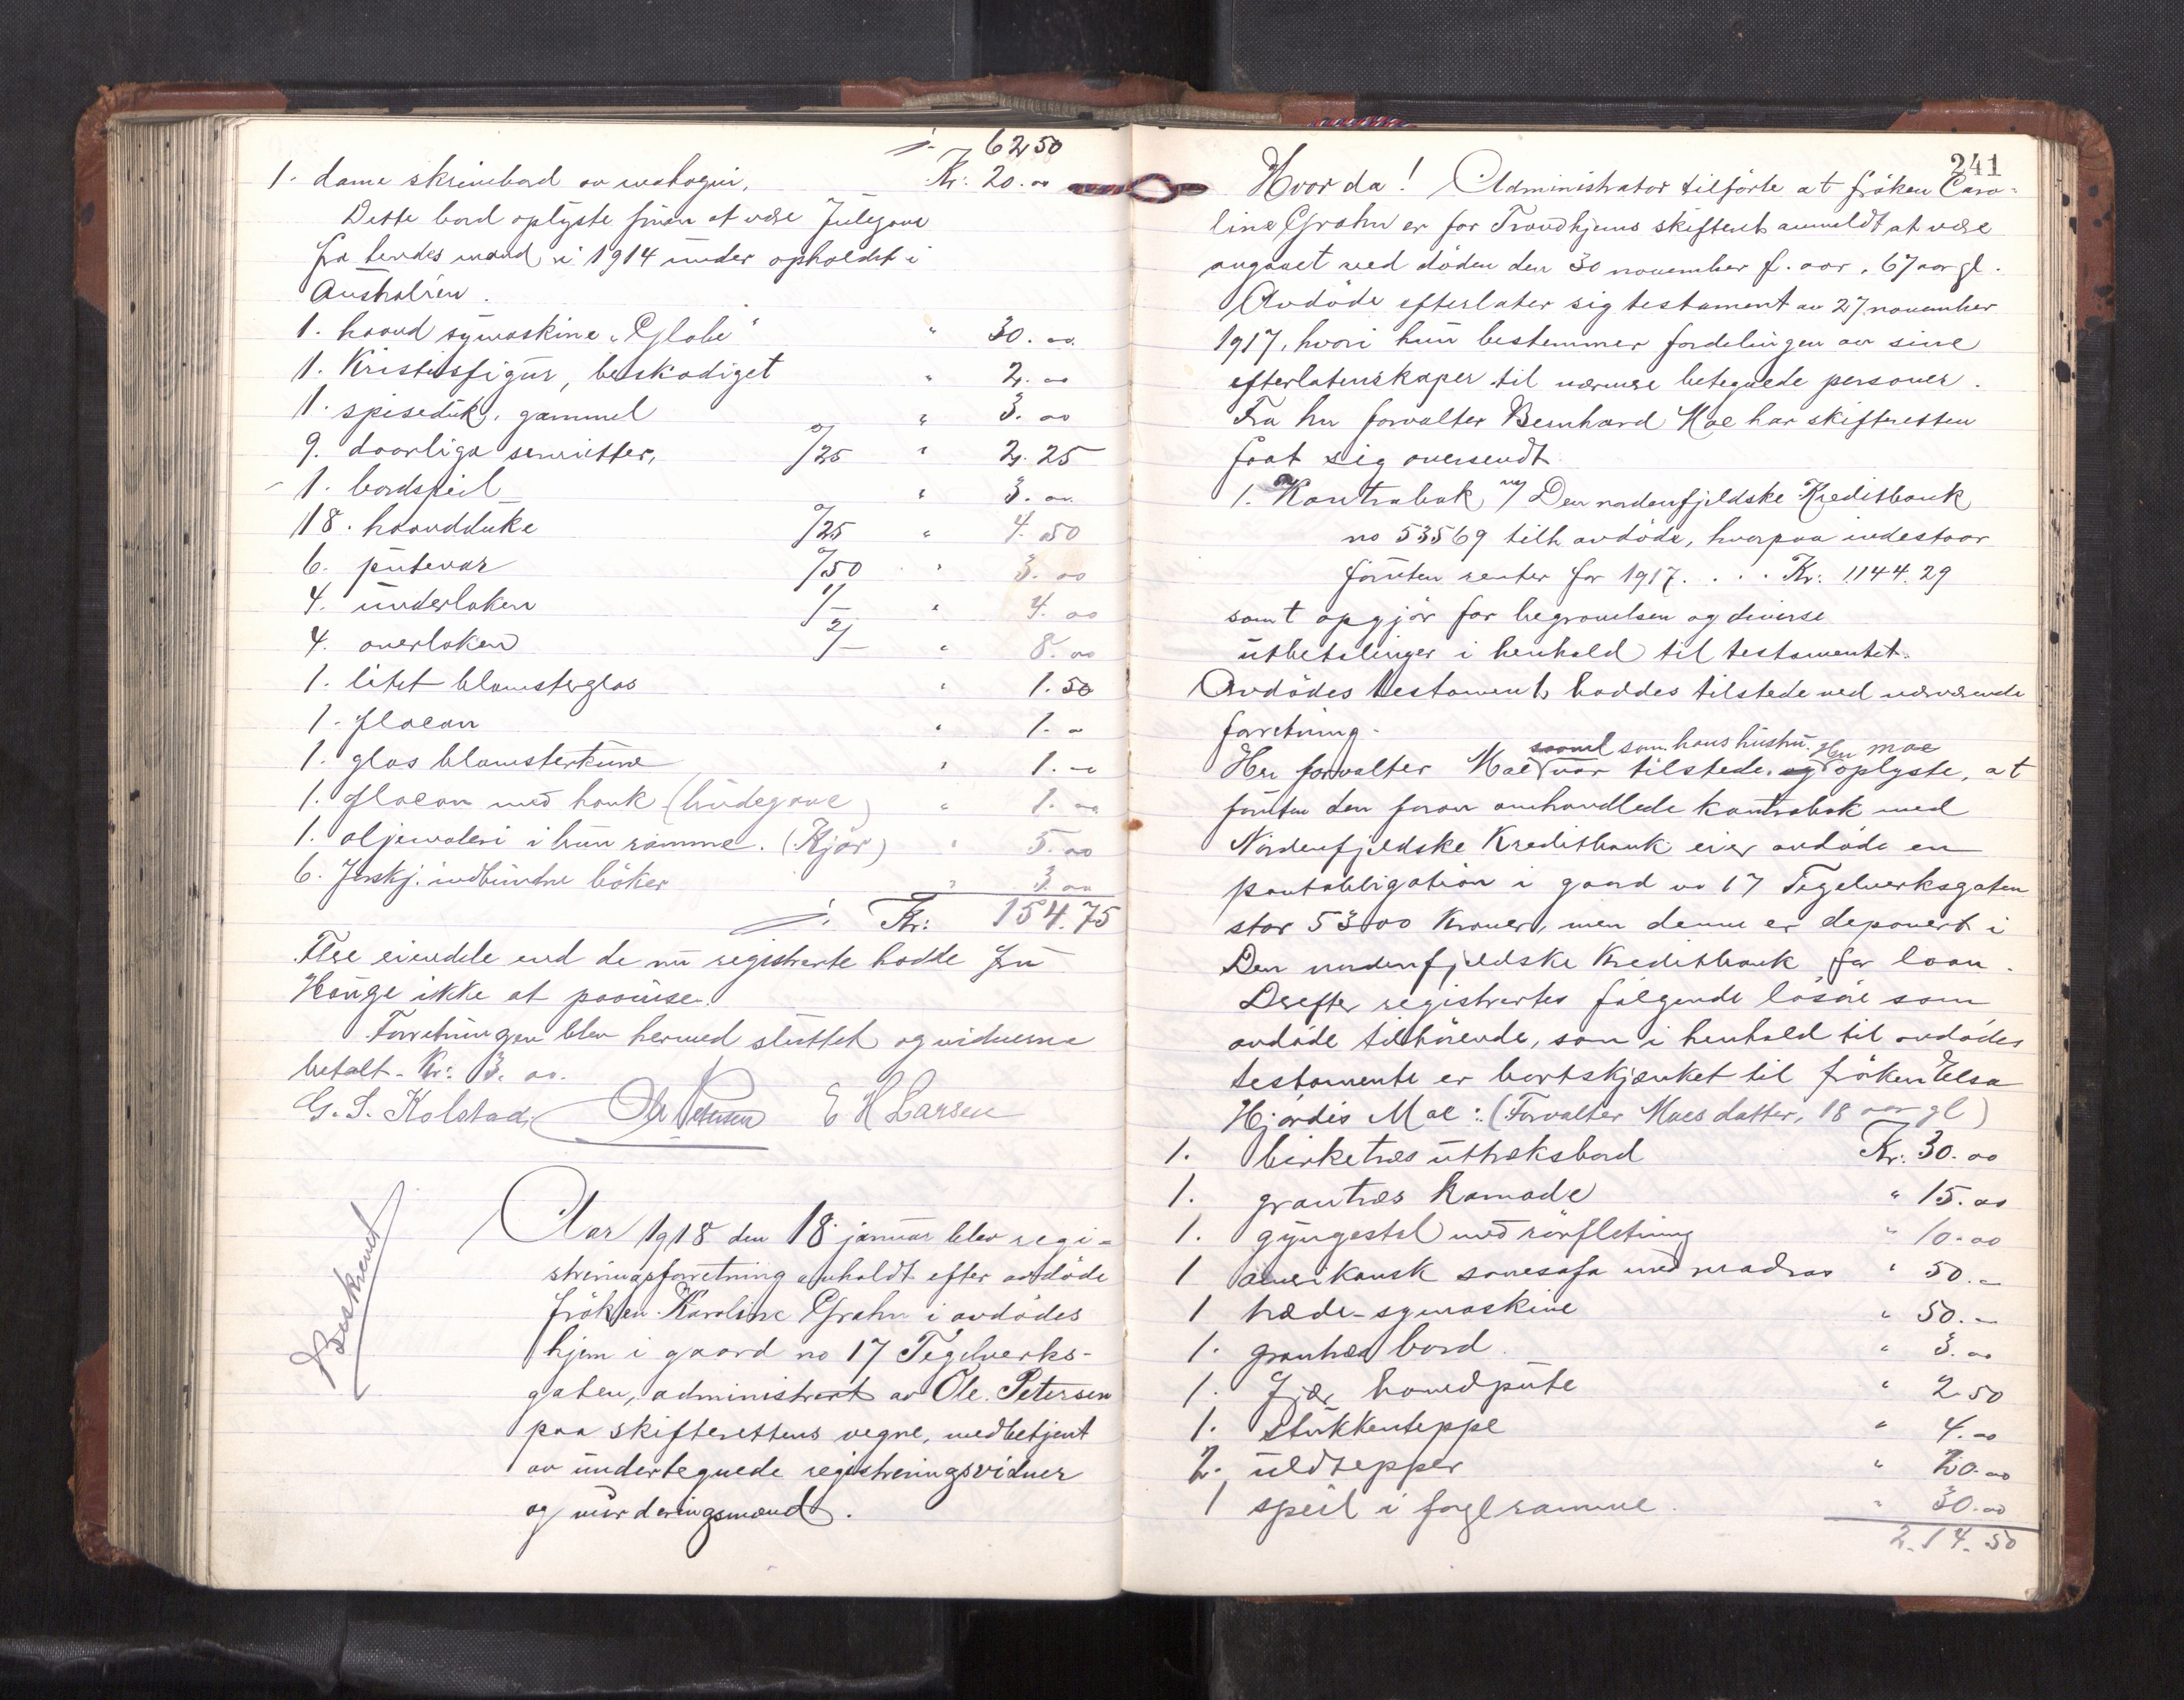 ÷ 62,50
1. dame skrivebord av mahogni, Kr: 20.00
Dette bord oplyste fruen at være Julegave
fra hendes mand i 1914 under opholdet i
Australien.
1. haand symaskine "Globe" " 30.00
1. Kristusfigur, beskadiget " 2.00
1. spisedük, gammel " 3.00
9. daarlige servietter, 0/25 " 2.25
1. bordspeil " 3.00
18. haandduke 0/25 " 4.50
6. putevar 0/50 " 3.00
4. underlaken 1/- " 4.00
4. overlaken 2/- " 8.00
1. litet blomsterglas " 1.50
1. flacon " 1.-
1. glas blomsterkurv " 1.-
1. flacon med hank (brudegave) " 1.00
1. oljemaleri i brun ramme. (Kjør) " 5.00
6. forskj. indbundne böker " 3.00
÷ Kr: 154.75
Flere eiendele end de nu registrerte hadde fru
Hauge ikke at paavise.
Forretningen blev hermed sluttet og vidnerne
betalt. Kr: 3.00.
G. S. Kolstad Ole Petersen E H Larsen
Beskrevet
Aar 1918 den 18 januar blev regi-
streringsforretning avholdt efter avdöde
fröken Karoline Grahn i avdödes
hjem i gaard no 17 Tegelverks-
gaten, administrert av Ole Petersen
paa skifterettens vegne, medbetjent
av undertegnede registreringsvidner
og vurderingsmænd.
241
Hvor da! Administrator tilförte at fröken Caro-
line Grahn er for Trondhjems skifteret anmeldt at være
avgaaet ved döden den 30 november f. aar, 67 aar gl.
Avdöde efterlater sig testament av 27 november
1917, hvori hun bestemmer fordelingen av sine
efterlatenskaper til nærmere betegnede personer.
Fra hr forvalter Bernhard Moe har skifteretten
faat sig oversendt
1. Kontrabok m/ Den nordenfjeldske Kreditbank
no 53569 tilh. avdöde, hvorpaa indestaar
foruten renter for 1917. . . . Kr: 1144.29
samt opgjör for begravelsen og diverse
utbetalinger i henhold til testamentet.
Avdödes testament haddes tilstede ved nærværende
forretning.
saavel som hans hustru. Hr Moe
Hr forvalter Moe var tilstede. og oplyste, at
foruten den foran omhandlede kontrabok med
Nordenfjeldske Kreditbank eier avdöde en
pantobligation i gaard no 17 Tegelverksgaten
stor 5300 Kroner, men denne er deponert i
Den nordenfjeldske Kreditbank for laan.
Derefter registrertes fölgende lösöre som
avdöde tilhörende, som i henhold til avdödes
testamente er bortskjænket til fröken Elsa
Hjördis Moe: (Forvalter Moes datter, 18 aar gl)
1. birketræs uttræksbord Kr: 30.00
1. grantræs Komode " 15.00
1. gyngestol med rörfletning " 10.00
1 amerikansk sovesofa med madras " 50.-
1 træde-symaskine " 50.-
1. grantræs bord " 3.00
1. fjær hovedpute " 2.50
1. stukkenteppe " 4.00
2. uldtepper " 20.00
1 speil i forgl ramme. " 30.00
214.50